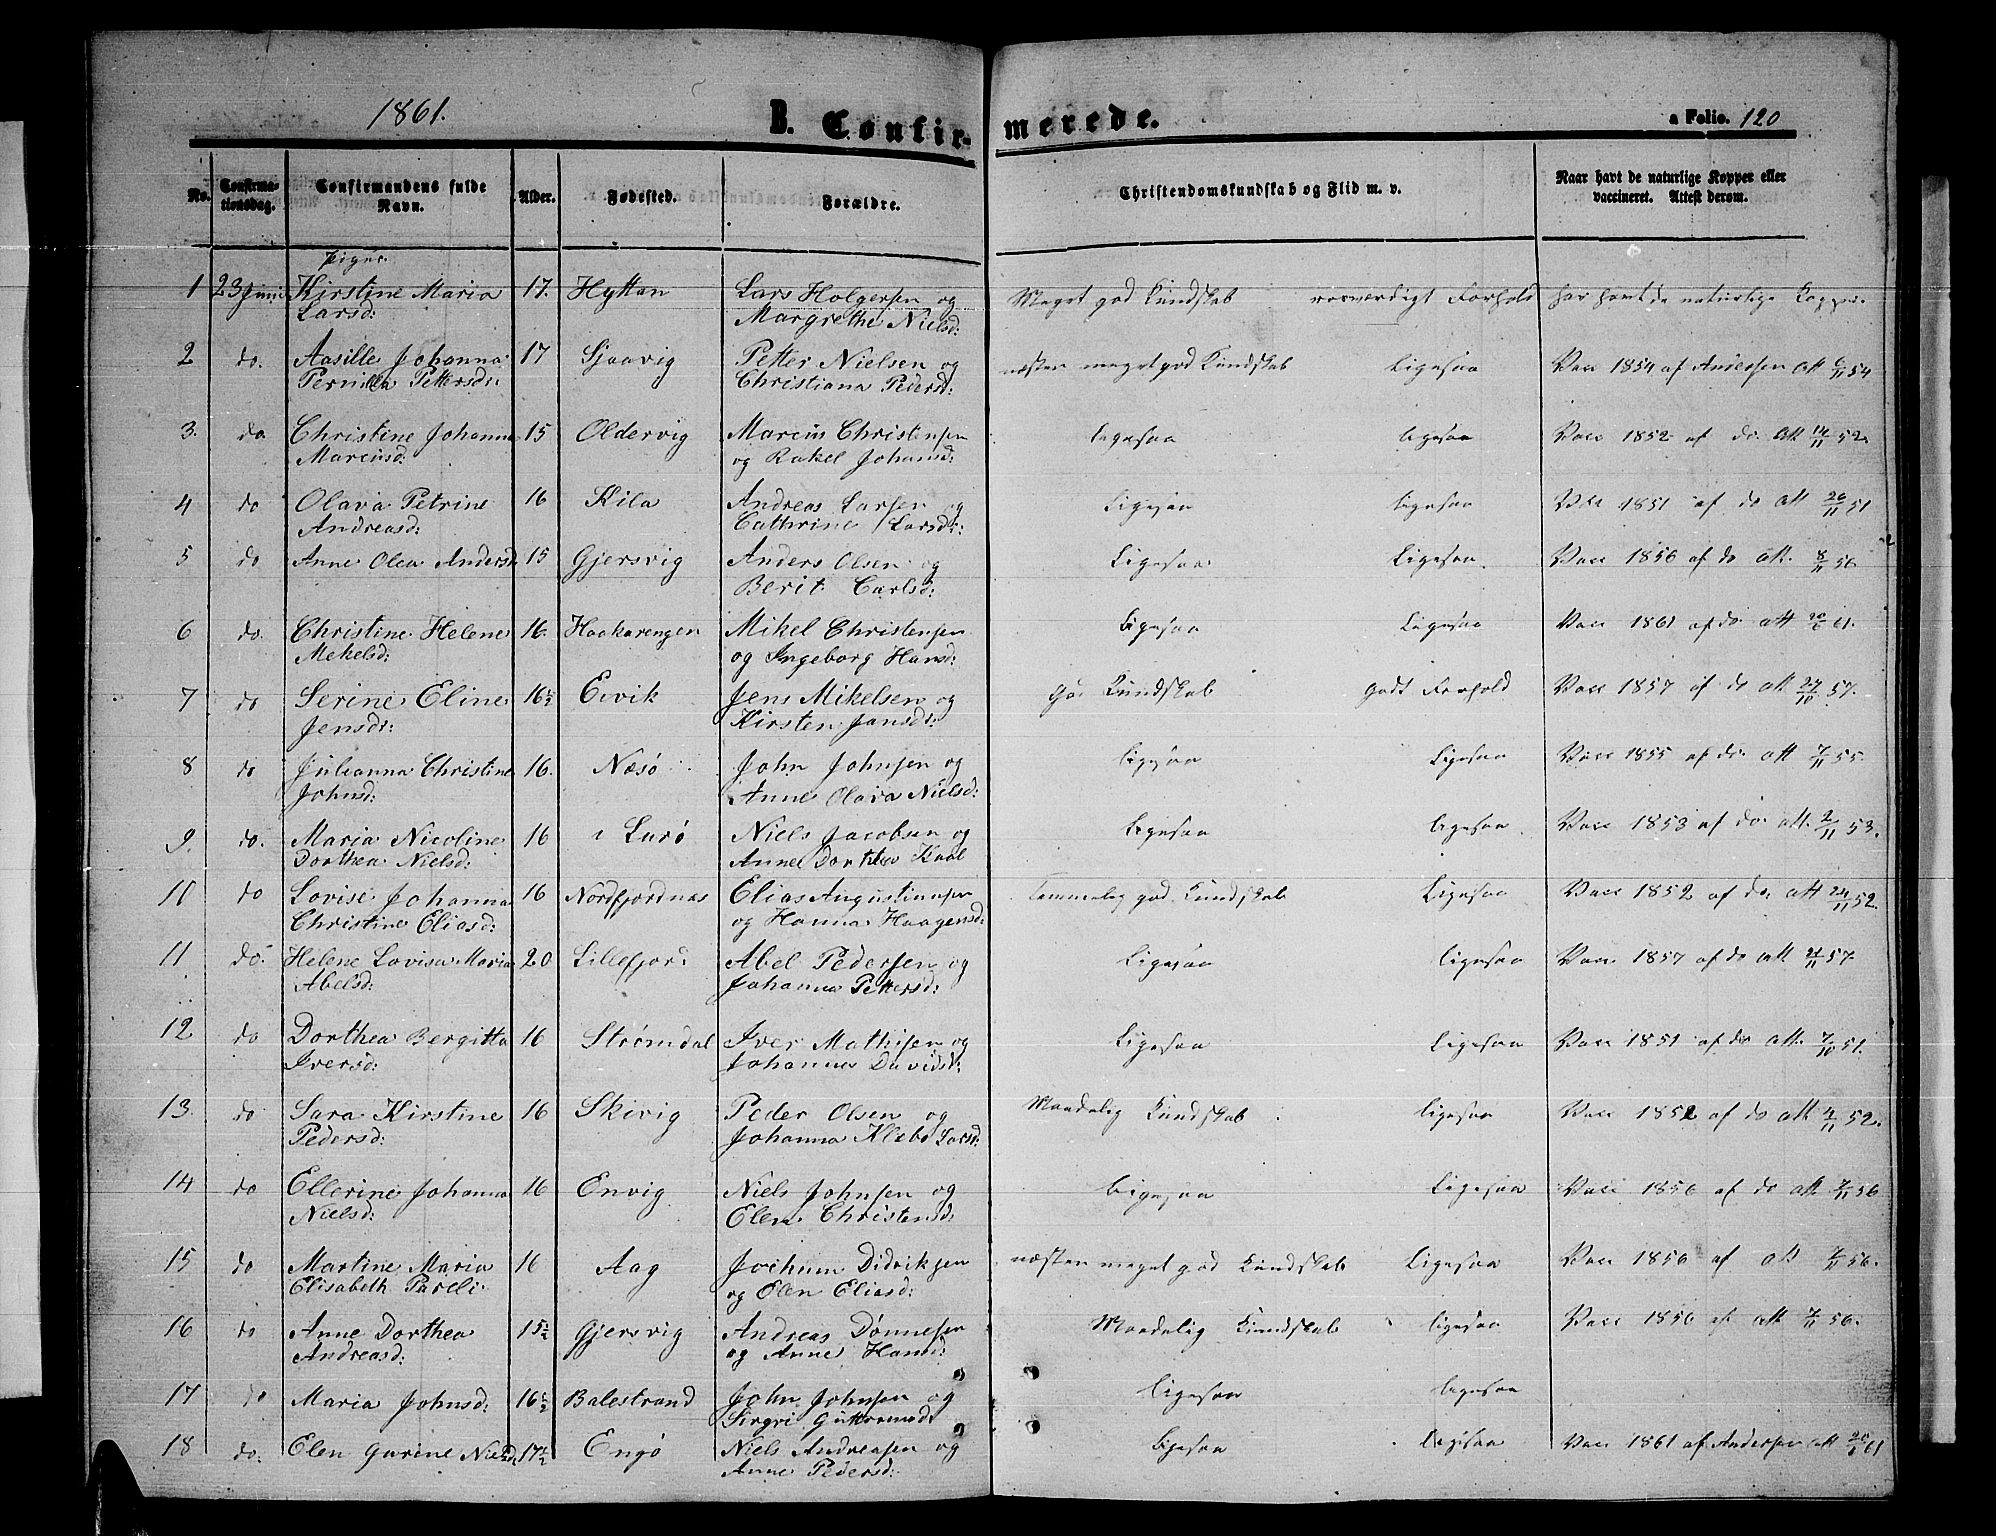 1861.
B. Confirmerede.
a Folio. 120
No. Confirmationsdag. Confirmandens fulde Navn. Alder. Fødested. Forældre. Christendomskundskab og Flid m. v. Naar havt de naturlige Kopper eller vaccineret. Attest derom.
Piger.
1 23 Juni Kirstine Maria 17. Hyttan Lars Holgersen og Meget god Kundskab roesværdigt Forhold har havt de naturlige Kopper.
Larsd: Margrethe Nielsd:
2 do. Aasille Johanna 17 Sjaavig Petter Nielsen og næsten meget god Kundskab Ligesaa Vacc 1854 af Andersen att 6/11 54
Pernilla Pettersd: Christiana Pedersd:
3. do. Christine Johanna 15 Oldervig Marcus Christensen ligesaa ligesaa Vacc 1852 af do att 14/11 52.
Marcusd: og Rakel Johansd:
4 do Olava Petrine 16 Kila Andreas Larsen og Ligesaa ligesaa Vacc 1851 af do att 26/11 51
Andreasd: Cathrine Larsd:
5 do Anne Olea Andersd 15 Gjersvig Anders Olsen og Ligesaa Ligesaa. Vacc 1856 af do att. 8/11 56
Berit Carlsd:
6 do. Christine Helene 16. Haakarengen Mikel Christensen Ligesaa Ligesaa Vacc 1861 af do att 20/6 61.
Mekelsd: og Ingeborg Hansd:
7 do Serine Eline 16½ Eivik Jens Mikelsen og god Kundskab godt Forhold Vacc 1857 af do att 27/10 57.
Jensd: Kirsten Jansd:
8 do Julianna Christine 16. Næsø John Johnsen og ligesaa Ligesaa Vacc 1855 af do att 7/11 55.
Johnsd: Anne Olava Nielsd:
9. do. Maria Nicoline 16 i Lurø Niels Jacobsen og ligesaa ligesaa. Vacc 1853 af do. att. 2/11 53.
Dorthea Nielsd: Anne Dorthea Kaal
10 do Lovise Johanna 16 Nordfjordnæs Elias Augustinusen Temmelig god Kundskab Ligesaa Vacc 1852 af do att 24/11 52.
Christine Eliasd: og Hanna Haagensd:
11 do. Helene Lovisa Maria 20 Lillefjord Abel Pedersen og Ligesaa ligesaa Vacc 1857 af do att 21/11 57
Abelsd: Johanna Pettersd:
12 do Dorthea Bergitta 16 Strømdal Iver Mathisen og Ligesaa Ligesaa Vacc 1851 af do att. 7/10 51.
Iversd: Johanna Davidsd:
13 do Sara Kirstine 16 Skivig Peder Olsen og Maadelig Kundskab ligesaa Vacc 1852 af do att 4/11 52.
Pedersd: Johanna Klebo Larsd:
14 do Ellerine Johanna 16 Envig Niels Johnsen og Ligesaa Ligesaa Vacc 1856 af do att 7/11 56
Nielsd: Elen Christensd:
15 do Martine Maria 16 Aag Jochum Didriksen næsten meget god Kundskab Ligesaa Vacc 1856 af att 7/11 56.
Elisabeth Pareli og Elen Eliasd:
16 do Anne Dorthea 15½ Gjersvig Andreas Dønnesen Maadelig Kundskab ligesaa Vacc 1856 af att 7/11 56.
Andreasd: og Anne Hansd:
17 do Maria Johnsd: 16½ Balestrand John Johnsen og ligesaa ligesaa
Sirgri Guttormsd:
18 do. Elen Gurine Nielsd 17½ Engø Niels Andreasen og ligesaa Ligesaa Vacc 1861 af Andersen att 20/6 61
Anne Pedersd: